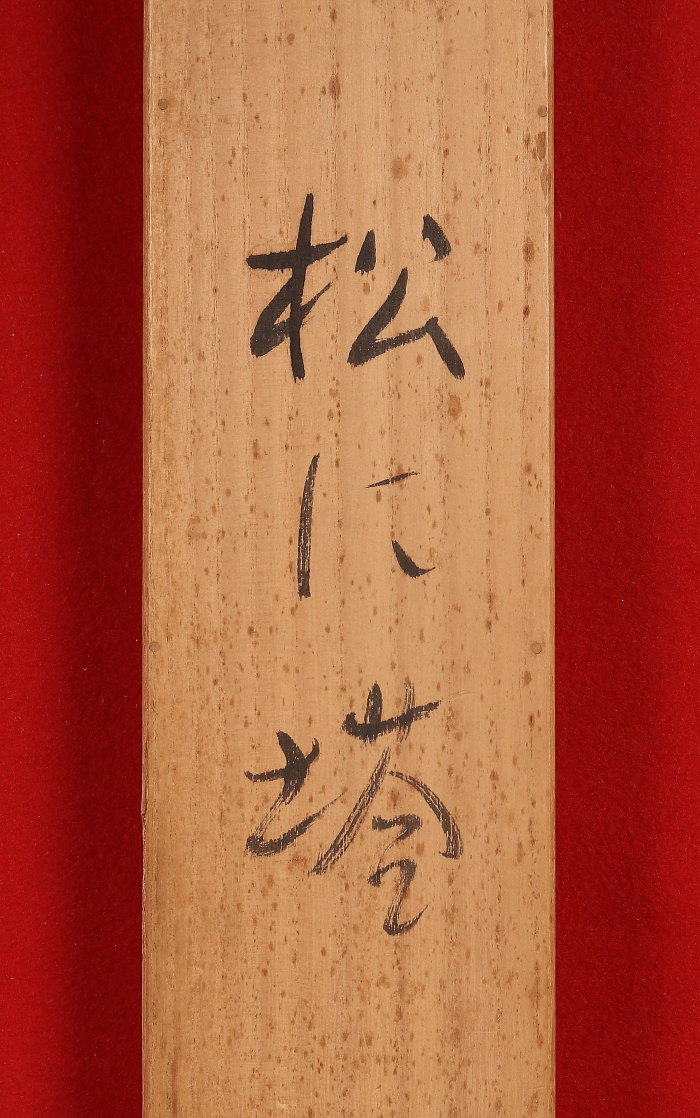 松に塔